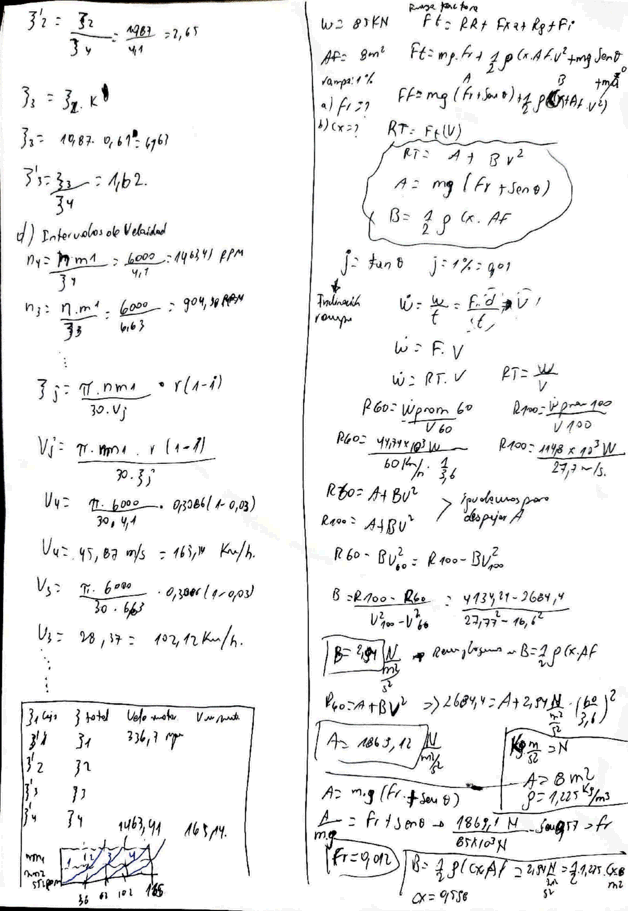 ξ'2 = ξ2/ξ4 = 10,87/4,1 = 2,65
ξ3 = ξ2 . K
ξ3 = 10,87 . 0,61 = 6,63
ξ'3 = ξ3/ξ4 = 1,62.
d) Intervalos de Velocidad
n4 = n m1/ξ4 = 6000/4,1 = 1463,41 RPM
n3 = n.m1/ξ3 = 6000/6,63 = 904,98 RPM
ξj = π.nm1/30.Vj . r(1-i)
Vj = π.nm1 . r (1-i)/30.ξj
V4 = π.6000/30.4,1 . 0,3086(1-0,03)
V4 = 45,87 m/s = 165,14 Km/h.
V3 = π.6000/30.6,63 . 0,3086(1-0,03)
V3 = 28,37 = 102,12 Km/h.
ξ caja ξ total Velo motor
ξ'1 ξ1 336,7 rpm
ξ'2 ξ2
ξ'3 ξ3
ξ'4 ξ4 1463,41 165,14.
1 2 3 4
nm1
nm2
36 62 102 165
Fuerza tractora
W = 85 KN Ft = RR + Fxa + Rg + Fi
Af = 8m² Ft = mg.fr + 1/2 ρ Cx.Af.V² + mg Senθ
rampa: 1% A B
a) fr = ? Ft = mg (fr + senθ) + 1/2 ρ (Cx + Af. V²)
b) Cx = ? RT = Ft(V)
RT = A + BV²
A = mg (Fr + Senθ)
B = 1/2 ρ Cx. AF
j = tanθ j = 1% = 0,01
Inclinación rampa
ẇ = w/t = F.d/t → V
ẇ = F. V
ẇ = RT. V RT = ẇ/V
R60 = ẇprom 60/V60 R100 = ẇprom 100/V100
R60 = 44,74 x10³ W/60 Km/h . 1/3,6 R100 = 114,8 x10³ W/27,7 m/s.
R60 = A + BV² > igualamos para
R100 = A + BV² despejar A
R60 - BV²60 = R100 - BV²100
B = R100 - R60/V²100 - V²60 = 4134,21 - 2684,4/27,77² - 16,6²
B = 2,94 N/m²/s² → Reemplazamos B = 1/2 ρ Cx.Af
R60 = A + BV² => 2684,4 = A + 2,94 N/m²/s² . (60/3,6)²
A = 1863,12 N/m²/s²
Kg m/s² = N
A = 8 m²
ρ = 1,225 Kg/m³
A = m.g (Fr. + Senθ)
A/mg = Fr + senθ → 1869,1 N/85x10³ N - Sen 0,57 = fr
Fr = 0,012
B = 1/2 ρ (Cx Af = 2,94 N/m²/s² = 1/2 . 1,225. Cx 8 m²
Cx = 0,556